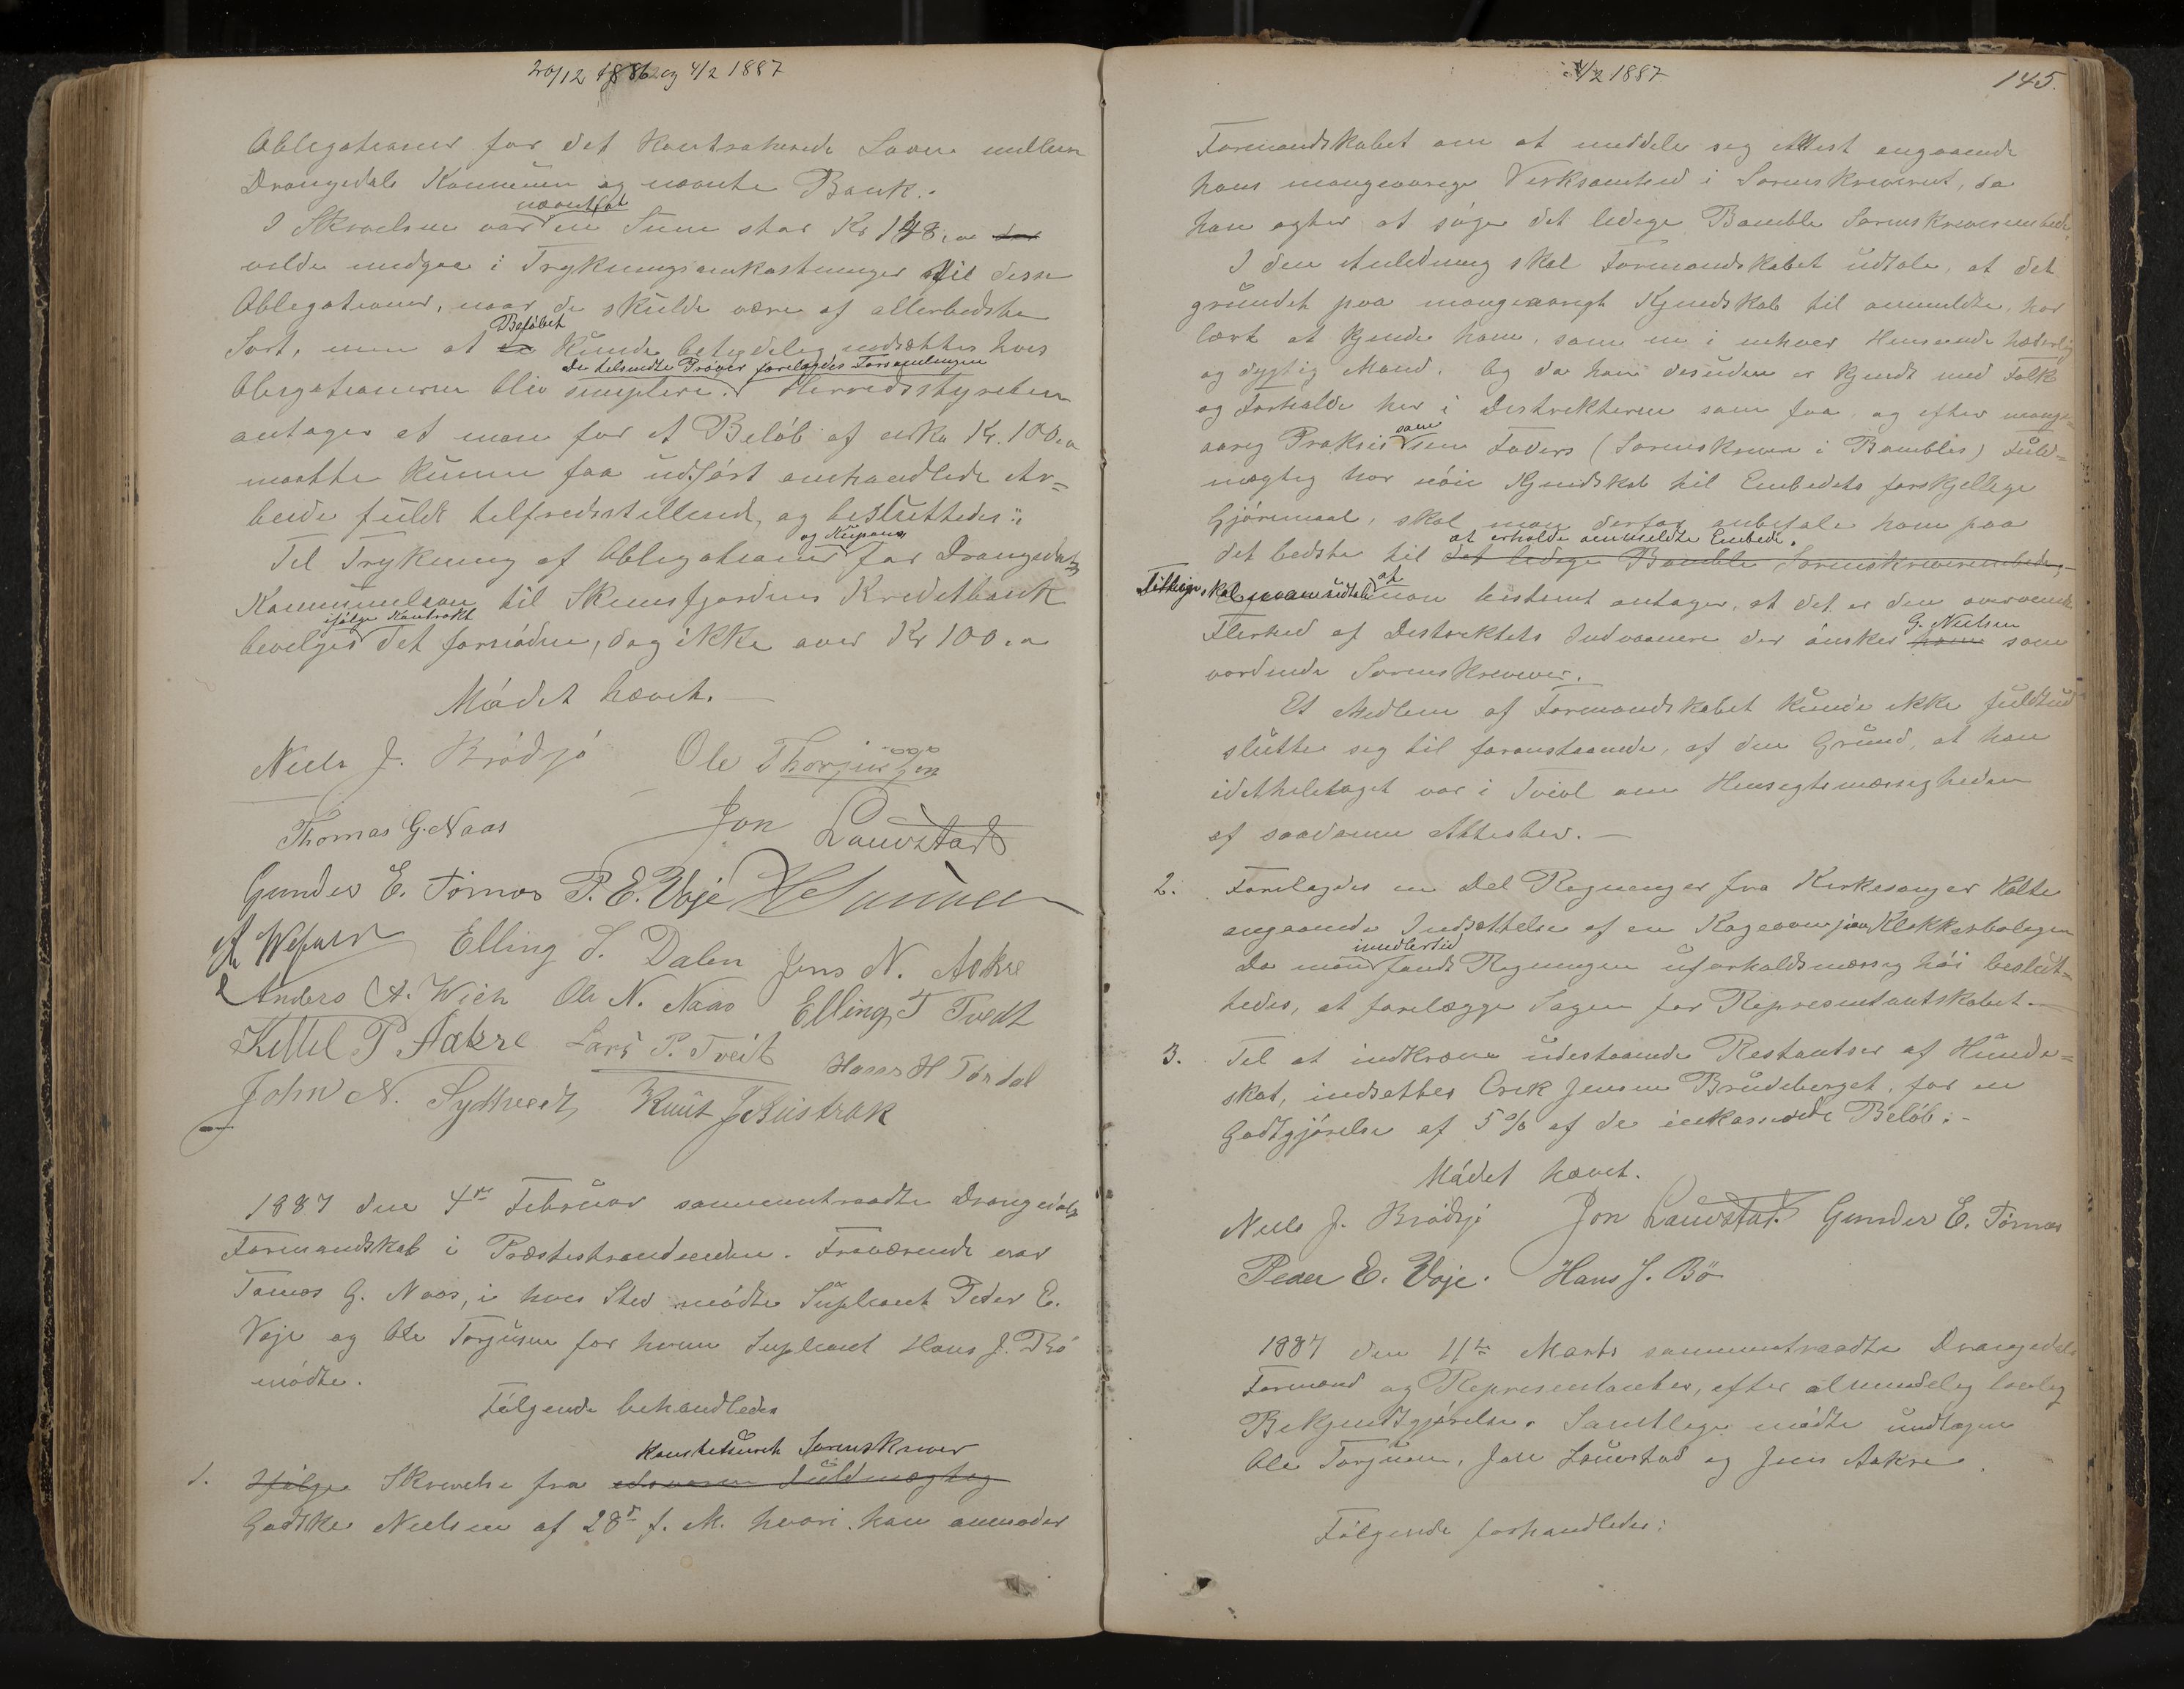 20/12 1886 og 4/2 1887
Obligationer for det kontraherede Laan mellem
Drangedals Kommune og nævnte Bank.
nævnt at
I Skrivelsen var en Sum stor Kr 148,00
vilde medgaa i Trykningsomkostninger til disse
Obligationer, naar de skulde være af allerbedste
Beløbet
Sort, men at kunde betydelig nedsættes hvis
De tilsendte Prøver forelagdes Forsamlingen
Obligationerne blev simplere. Herredsstyrelsen
antager at man for et Beløb af cirka Kr. 100,00
maatte kunne faa udført omhandlede Ar=
beide fuldt tilfredsstillende, og besluttedes:
og Kupons
Til Trykning af Obligationer for Drangedals
Kommunelaan til Skiensfjordens Kreditbank
ifølge Kontrakt
bevilges det fornødne, dog ikke over Kr 100,00
Mødet hævet.
Niels J. Brødsjø Ole Thorjussen
Thomas G. Naas Jon Lauvstad
Gunder E. Tørnes P. E. Voje
Elling S. Dalen Jens N. Aakre
Anders A. Wieh Ole N. Naas Elling T Tvedt
Kittel P. Aakre Lars P. Tveit Hans H Tørdal
John N. Sydtveit, Knut J Austrak
1887 den 4de Februar sammentraadte Drangedals
Formandskab i Præstestranden. Fraværende var
Tomas G. Naas, i hvis Sted mødte Supleant Peder E.
Voje og Ole Torjusen for hvem Supleant Hans J. Bø
mødte.
Følgende behandledes
Konstitueret Sorenskriver
1. Ifølge Skrivelse fra Fuldmægtig
Godtske Nielsen af 28de f. M. hvori han anmoder
4/2 1887
145.
Formandskabet om at meddele sig Attest angaaende
hans mangeaarige Virksomhed i Sorenskriveriet, da
han agter at søge det ledige Bamble Sorenskriverembede.
I den Anledning skal Formandskabet udtale, at det
grundet paa mangeaarigt Kjendskab til anmeldte, har
lært at kjende ham, som en i enhver Henseende hæderlig
og dygtig Mand. Og da han desuden er kjendt med Folk
og Forholde her i Distrikterne som faa, og efter mange=
som
aarig Praksis sin Faders (Sorenskriver i Bambles) Fuld=
mægtig har nøie Kjendskab til Embedets forskjellige
Gjøremaal, skal man derfor anbefale ham paa
at erholde anmeldte Embede.
det bedste til det ledige Bamble Sorenskriverembede,
at
Tillige skal man udtale man bestemt antager, at det er den overveiende
G. Nielsen
Flerhed af Distriktets Indvaanere der ønsker ham som
vordende Sorenskriver.
Et Medlem af Formandskabet kunde ikke fuldtud
slutte sig til foranstaaende, af den Grund, at han
idetheletaget var i Tvivl om Hensigtsmæssigheden
af saadanne Attester.
2. Forelagdes en Del Regninger fra Kirkesanger Holte
angaaende Indsættelse af en Kogeovn paa Klokkerboligen
imidlertid
Da man fandt Regningen uforholdsmæssig høi beslut=
tedes, at forelægge Sagen for Representantskabet.
3. Til at indkræve udestaaende Restantser af Hunde=
skat, indsættes Erik Jensen Brudeberget, for en
Godtgjørelse af 5% af de inkasserede Beløb.
Mødet hævet.
Niels J. Brødsjø Jon Lauvstad. Gunder E. Tørnes
Peder E. Voje. Hans J. Bø
1887 den 11te Marts sammentraadte Drangedals
Formænd og Representanter, efter almindelig lovlig
Bekjendtgjørelse. Samtlige mødte undtagen
Ole Torjusen, Jon Lauvstad og Jens Aakre
Følgende forhandledes: